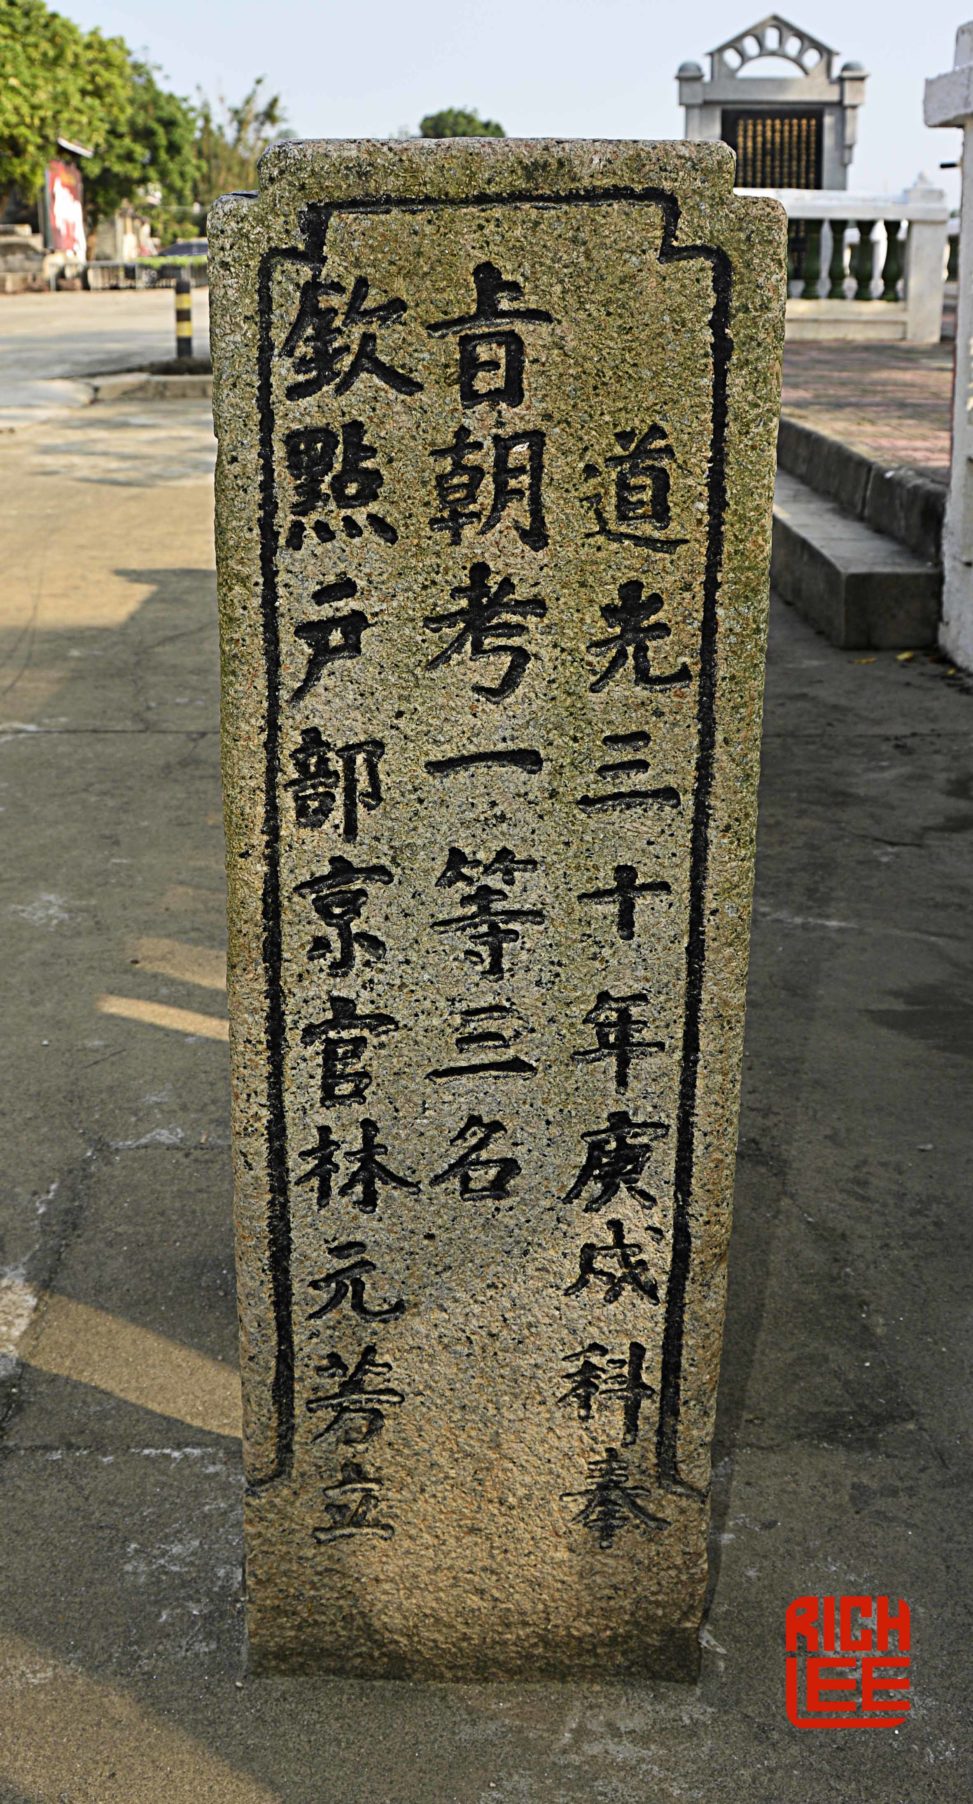 道光三十年庚戌科奉
旨朝考一等三名
欽點戶部京官林元芳立
RICH
LEE